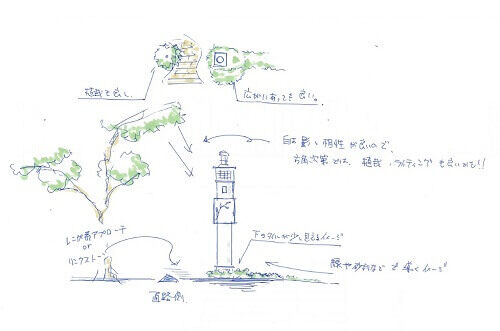 植栽で良し
広がりあっても良い。
白は影と相性が良いので、
方角次第では、植栽・ライティングも良いかも!!
レンガ帯アプローチ
or
リンクストーン
下のラインが少し見えるイメージ
緑や砂利などで導くイメージ
道路側